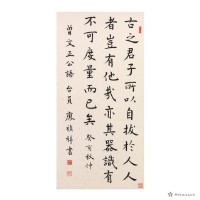 古之君子所以自拔於人人
者豈有他哉亦其器識有
不可度量而已矣 癸亥秋仲
曾文正公語 台員 廖禎祥書